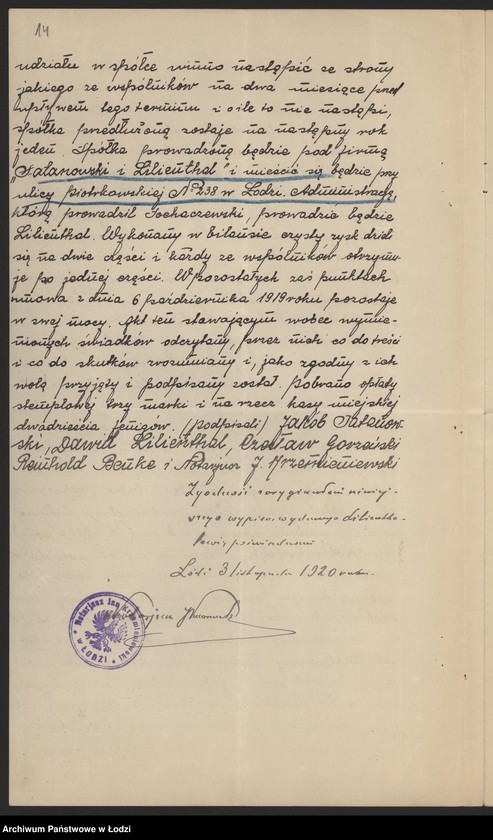 14
udziału w spółce winno nastąpić ze strony
jakiego ze wspólników na dwa miesiące przed
upływem tego terminu i o ile to nie nastąpi,
spółka przedłużoną zostaje na następny rok
jeden. Spółka prowadzoną będzie pod firmą
„Satanowski i Lilienthal" i mieścić się będzie przy
ulicy Piotrkowskiej № 238 w Łodzi. Administrację,
którą prowadził Sochaczewski, prowadzić będzie
Lilienthal. Wykonany w bilansie czysty zysk dzieli
się na dwie części i każdy ze wspólników otrzymu-
je po jednej części. W pozostałych zaś punktach
umowa z dnia 6 października 1919 roku pozostaje
w swej mocy. Akt ten stawającym wobec wymie-
nionych świadków odczytany, przez nich co do treści
i co do skutków zrozumiany i, jako zgodny z ich
wolą przyjęty i podpisany został. Pobrano opłaty
stemplowej trzy marki i na rzecz kasy miejskiej
dwadzieścia fenigów. (podpisali) Jakób Satanow-
ski, Dawid Lilienthal, Czesław Gorzański
Reinhold Benke i Notarjusz J. Krzemieniewski
Zgodność z oryginałem niniej-
szego wypisu wydanego Lilientha-
lowi, poświadczam
Łódź 3 listopada 1920 roku.
Notarjusz Jan Krzemieniewski
w ŁODZI
Archiwum Państwowe w Łodzi